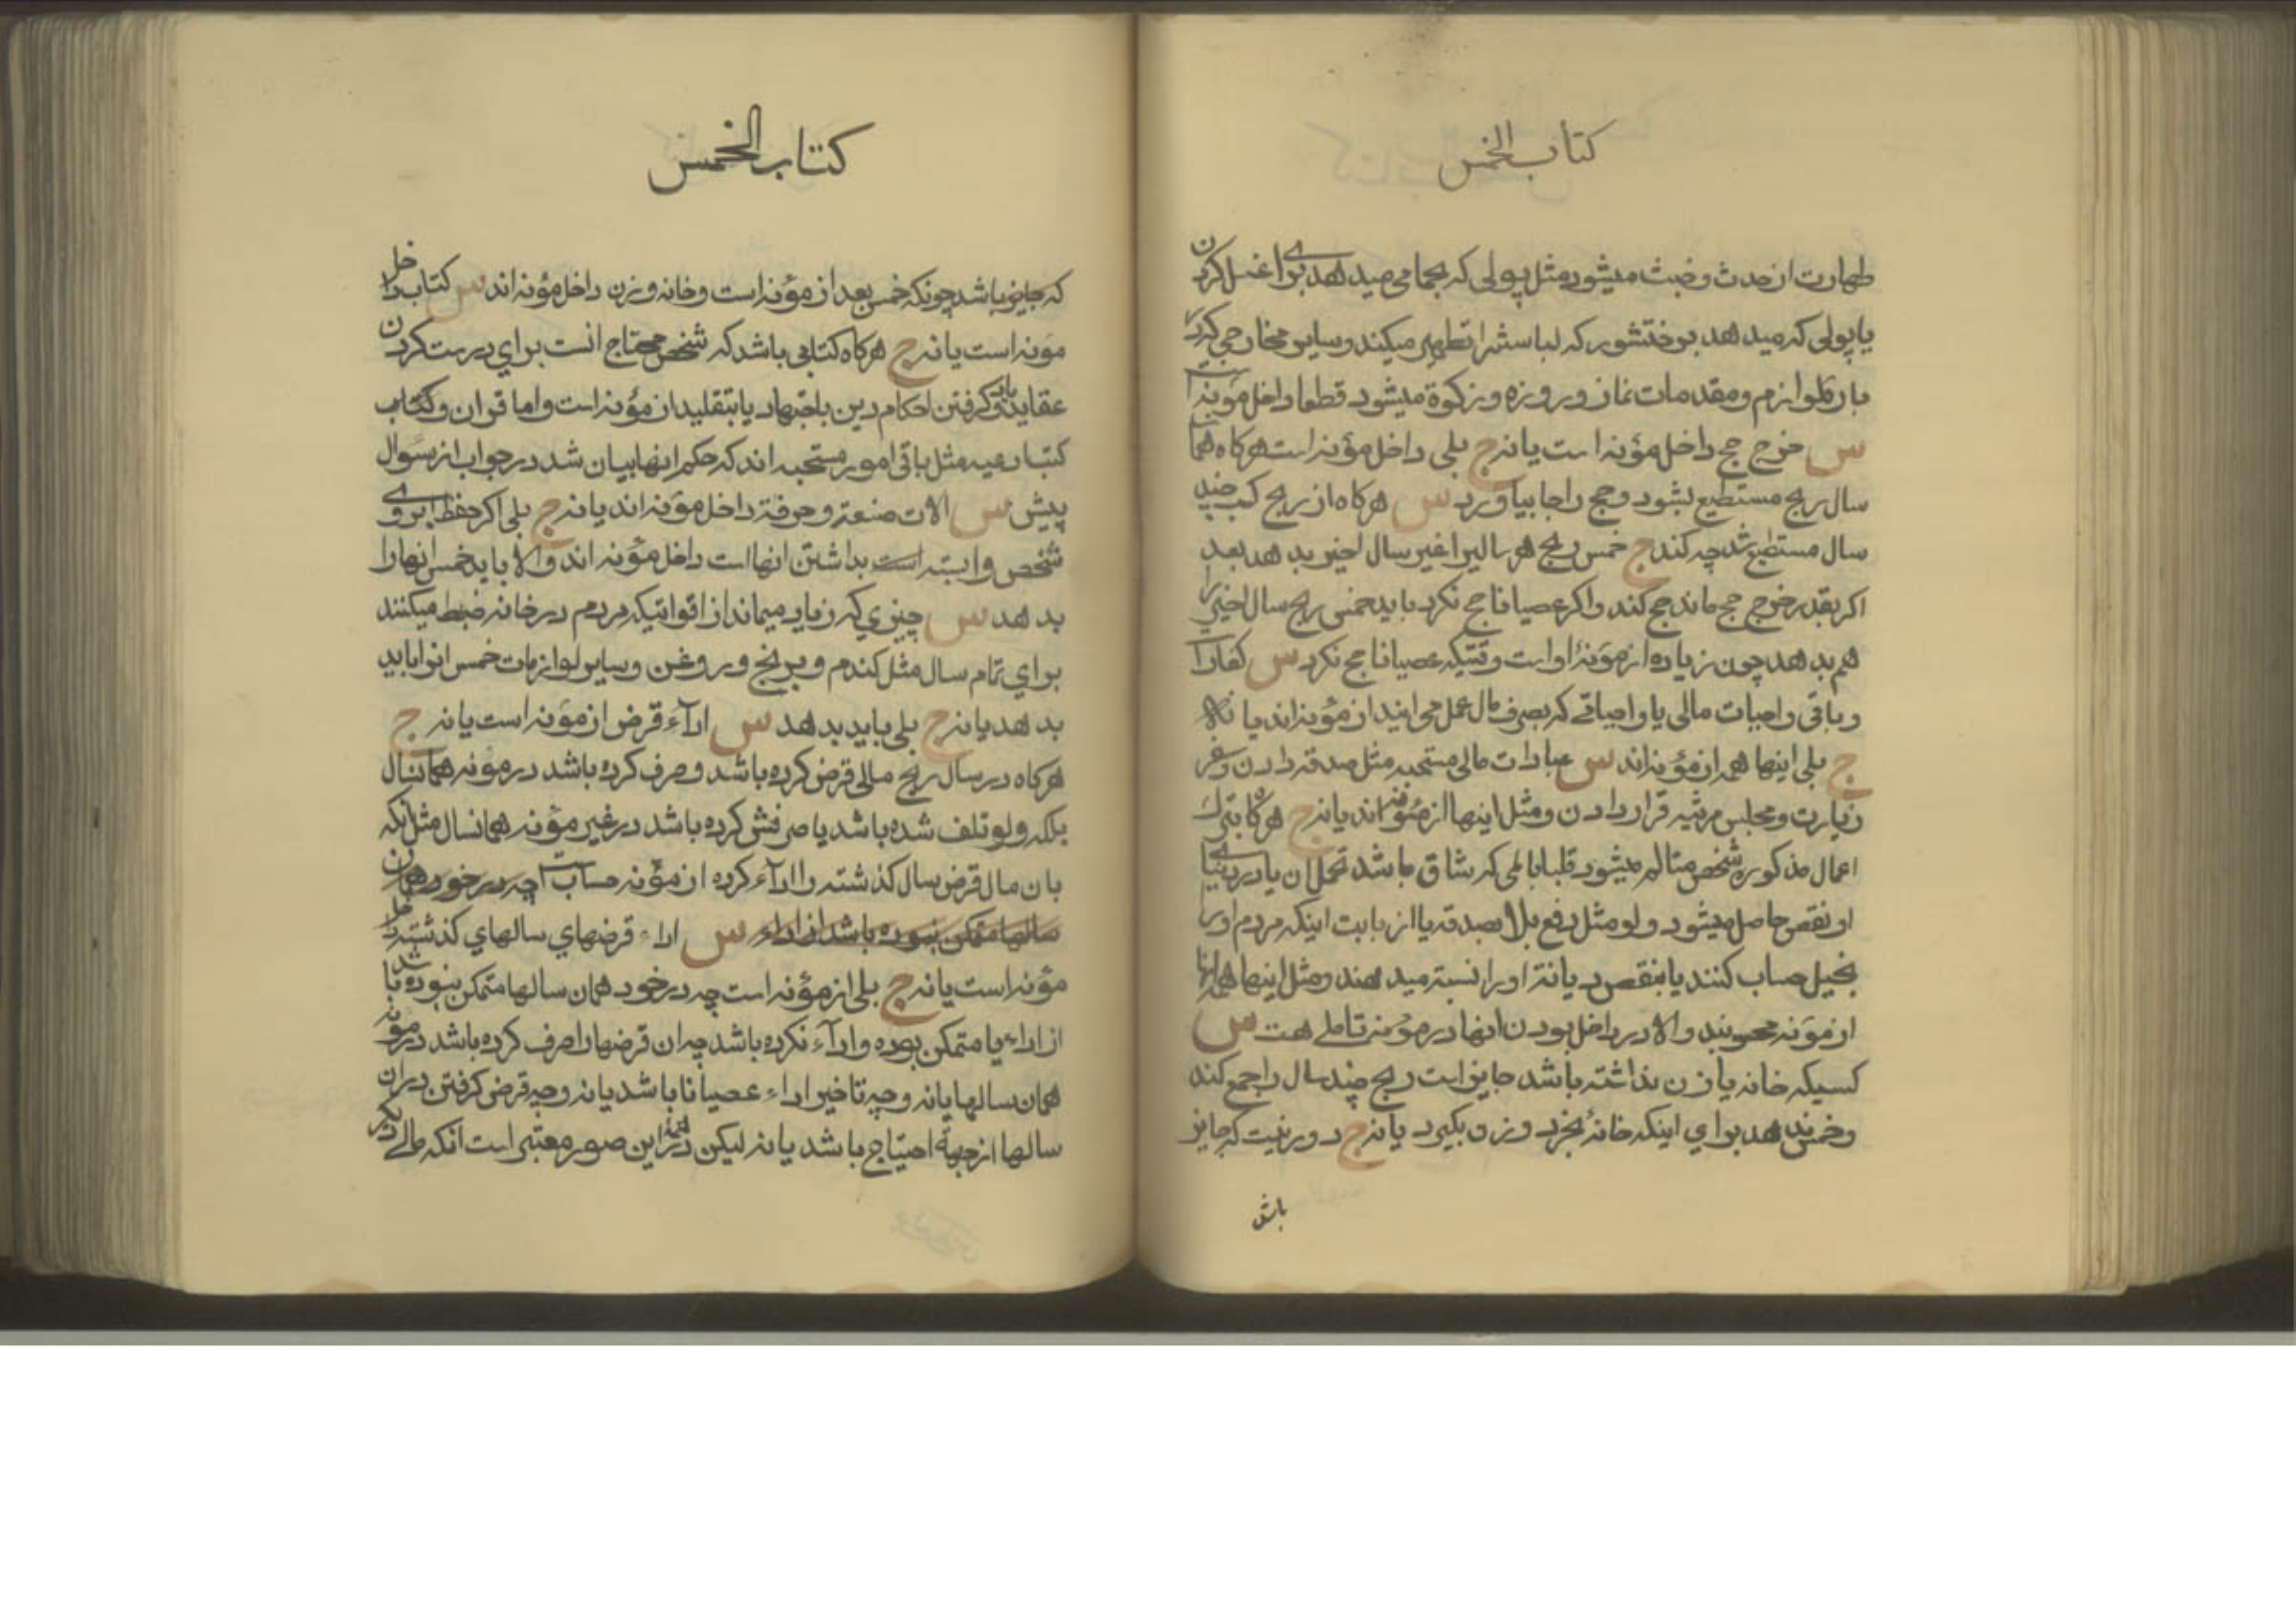 كتاب الخمس
طهارت از حدث و خبث میشود مثل پولی که بحمامی میدهد برای غسل کردن
یا پولی که میدهد برختشور که لباسش را تطهیر میکند و سایر مخارجی که در
بار لوازم و مقدمات نماز و روزه و زکوة میشود قطعا داخل مؤنه است
س خرج حج داخل مؤنه است یا نه ج بلی داخل مؤنه است هرکاه همان
سال ربح مستطیع بشود و حج را جا بیاورد س هرکاه از ربح کسب چند
سال مستطیع شد چه کند ج خمس ربح هر سالیرا غیر سال اخیر بدهد بعد
اکر بقدر خرج حج ماند حج کند و اکر عصیانا حج نکرد باید خمس ربح سال اخیر را
هم بدهد چون زیاده از مؤنۀ او است وقتیکه عصیانا حج نکرد س کفارات
و باقی واجبات مالی یا واجباتی که بصرف مال عمل می ایند از مؤنه اند یا نه
ج بلی اینها همه از مؤنه اند س عبادات مالی مستحبه مثل صدقه دادن و سفر
زیارت و مجلس مرثیه قرار دادن و مثل اینها از مؤنه اند یا نه ج هرکاه بترک
اعمال مذکوره شخص متالم میشود قلبا بالمی که شاق باشد تحمل ان یا در دنیای
او نقص حاصل میشود ولو مثل دفع بلا بصدقه یا از بابت اینکه مردم او را
بخیل حساب کنند یا بنقص دیانة او را نسبة میدهند و مثل اینها همه انها
از مؤنه محسوبند والا در داخل بودن انها در مؤنه تاملی هست س
کسیکه خانه یا زن نداشته باشد جایز است ربح چند سال را جمع کند
و خمس ندهد برای اینکه خانۀ بخرد و زن بکیرد یا نه ج دور نیست که جایز
باشد
كتاب الخمس
که جایز باشد چونکه خمس بعد از مؤنه است و خانه و زن داخل مؤنه اند س کتاب داخل
مؤنه است یا نه ج هرکاه کتابی باشد که شخص محتاج انست برای درست کردن
عقاید یا یاد کرفتن احکام دین باجتهاد یا بتقلید از مؤنه است و اما قران و کتاب
کتب ادعیه مثل باقی امور مستحبه اند که حکم انها بیان شد در جواب از سؤال
پیش س الات صنعة و حرفة داخل مؤنه اند یا نه ج بلی اکر حفظ ابروی
شخص وابسته است بداشتن انها است داخل مؤنه اند والا باید خمس انها را
بدهد س چیزی که زیاد میماند از اقواتیکه مردم در خانه ضبط میکنند
برای تمام سال مثل کندم و برنج و روغن و سایر لوازمات خمس انرا باید
بدهد یا نه ج بلی باید بدهد س اداء قرض از مؤنه است یا نه ج
هرکاه در سال ربح مالی قرض کرده باشد و صرف کرده باشد در مؤنه همانسال
بلکه ولو تلف شده باشد یا صرفش کرده باشد در غیر مؤنه همانسال مثل انکه
بان مال قرض سال کذشته را اداء کرده از مؤنه حساب است چه در خود همان
سالها متمکن نبوده باشد از اداء س اداء قرضهای سالهای کذشته داخل
مؤنه است یا نه ج بلی از مؤنه است چه در خود همان سالها متمکن نبوده باشد
از اداء یا متمکن بوده و اداء نکرده باشد چه ان قرضها را صرف کرده باشد در مؤنه
همان سالها یا نه و چه تاخیر اداء عصیانا باشد یا نه و چه قرض کرفتن در ان
سالها از جهة احتیاج باشد یا نه لیکن در تمام این صور معتبر است انکه مالی دیکر